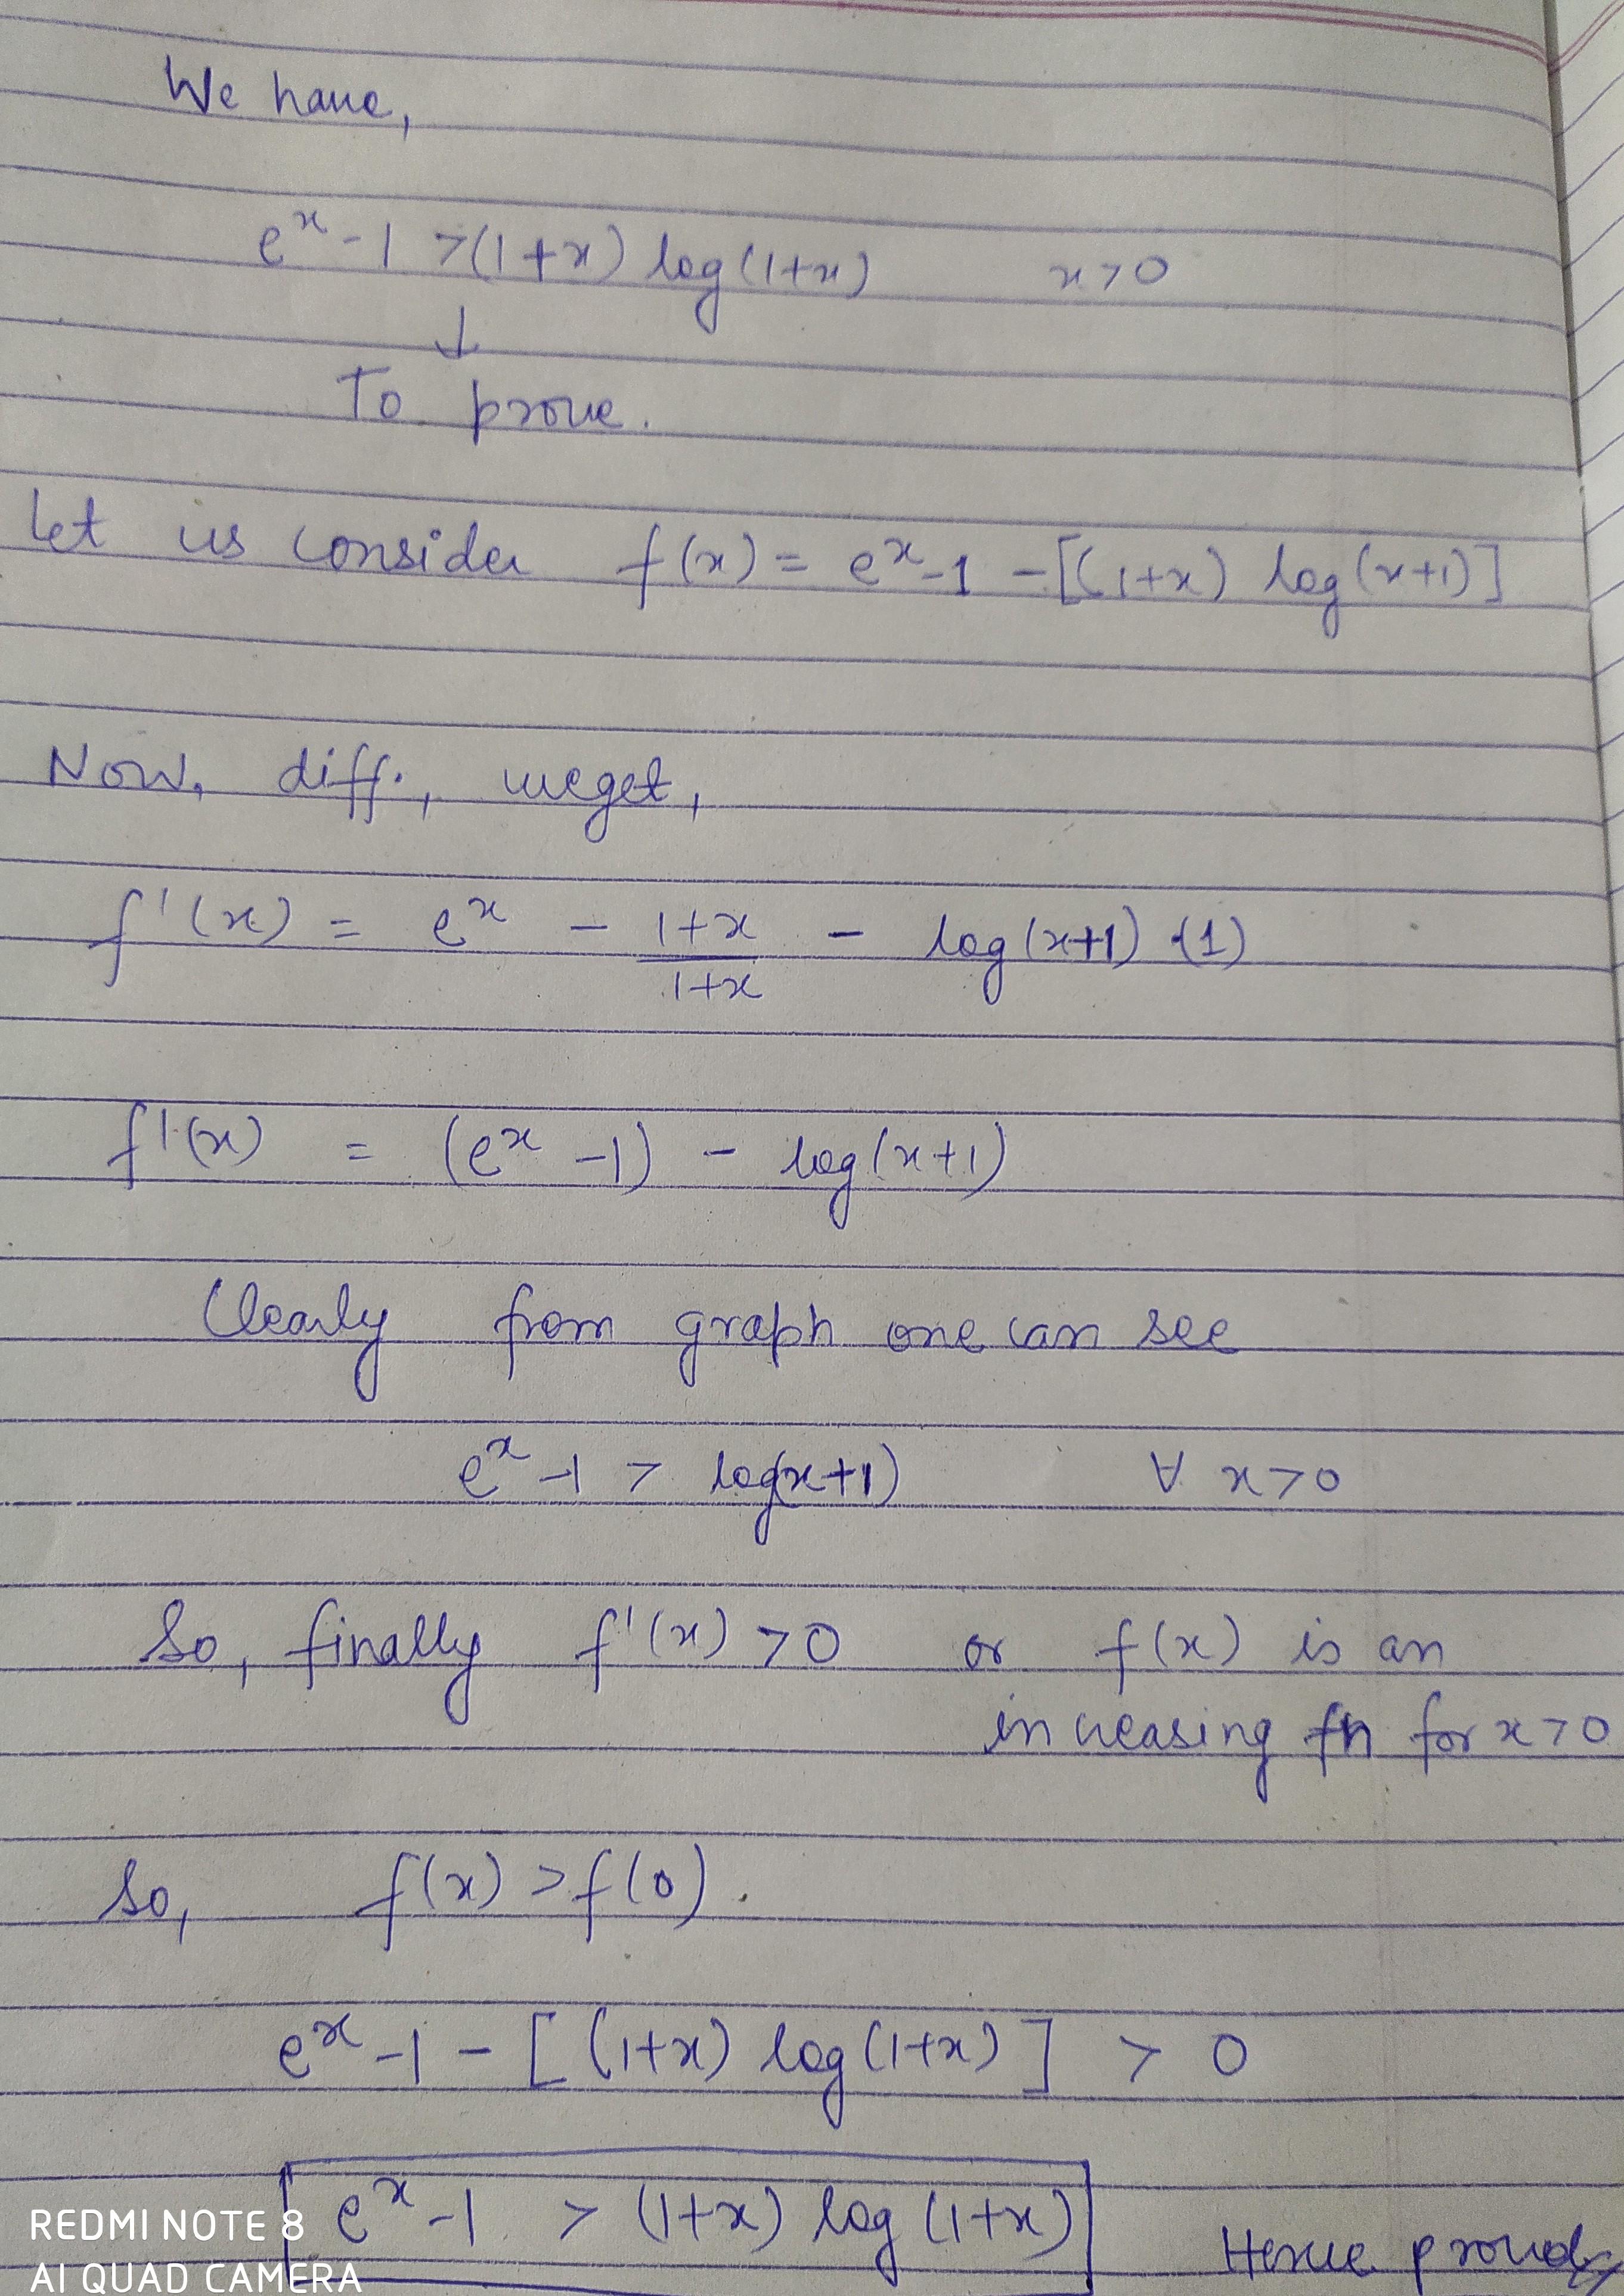 We have,
e^x - 1 > (1+x) log(1+x) x>0
↓
To prove.
Let us consider f(x) = e^x - 1 - [(1+x) log(x+1)]
Now, diff., we get,
f'(x) = e^x - (1+x)/(1+x) - log(x+1) · (1)
f'(x) = (e^x - 1) - log(x+1)
Clearly from graph one can see
e^x - 1 > log(x+1) ∀ x>0
So, finally f'(x) > 0 or f(x) is an
increasing fn for x>0
So, f(x) > f(0).
e^x - 1 - [(1+x) log(1+x)] > 0
e^x - 1 > (1+x) log(1+x) Hence proved
REDMI NOTE 8
AI QUAD CAMERA